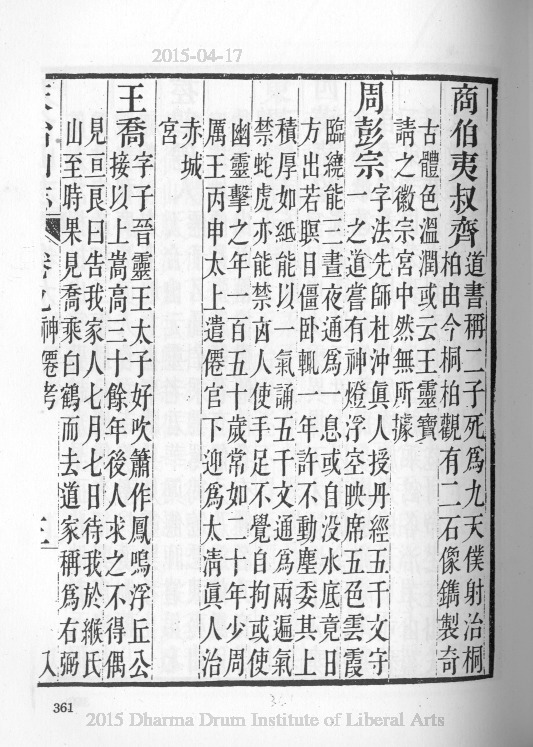 2015-04-17
商伯夷叔齊道書稱二子死為九天僕射治桐
柏由今桐柏觀有二石像鐫製奇
古體色溫潤或云王靈寶
請之徽宗宮中然無所據
周彭宗字法先師杜沖眞人授丹經五千文守
一之道嘗有神燈浮空映席五色雲霞
臨繞能三晝夜通為一息或自没水底竟日
方出若瞑目僵卧輒一年許不動塵委其上
積厚如紙能以一氣誦五千文通為兩遍氣
禁蛇虎亦能禁凶人使手足不覺自拘或使
幽靈擊之年一百五十歲常如二十年少周
厲王丙申太上遣僊官下迎為太清眞人治
赤城
宮
王喬字子晉靈王太子好吹簫作鳳鳴浮丘公
接以上嵩高三十餘年後人求之不得偶
見亘良曰告我家人七月七日待我於緱氏
山至時果見喬乘白鶴而去道家稱為右弼
天台山志 卷九神僊考 入
361
2015 Dharma Drum Institute of Liberal Arts